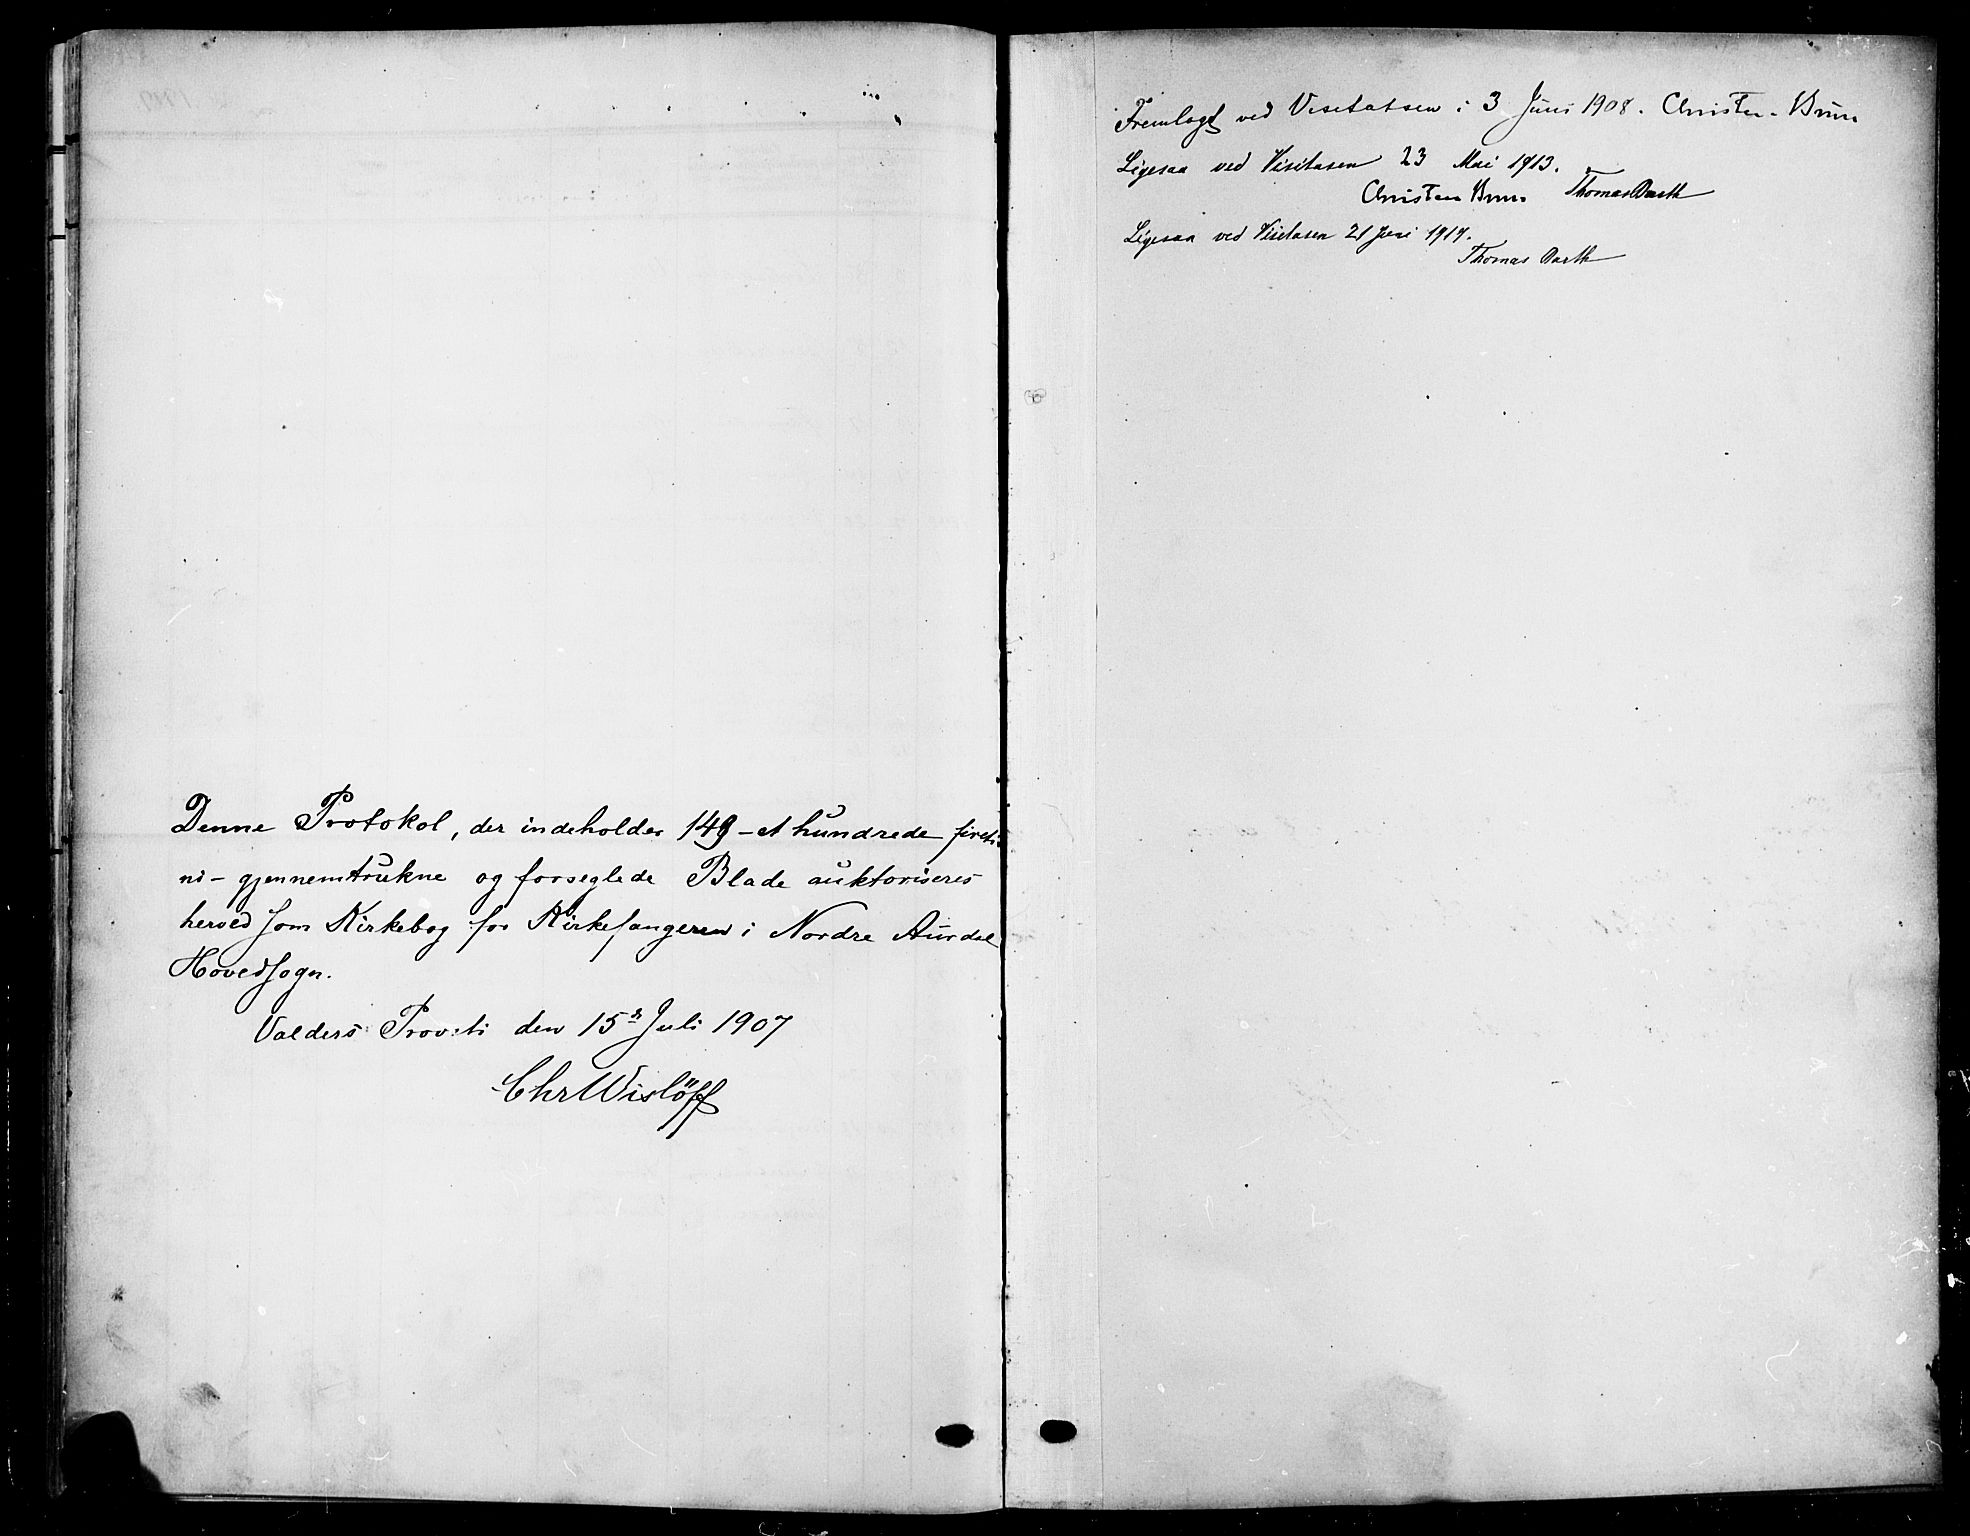 Denne Protokol, der indeholder 149 – et hundrede fireti
ni – gjennemtrukne og forseglede Blade auktoriseres
herved som Kirkebog for Kirkesangeren i Nordre Aurdal
Hovedsogn.
Valders Provsti den 15de Juli 1907
Chr Wislöff
Fremlagt ved Visitatsen i 3 Juni 1908. Christen Brun
Ligesaa ved Visitasen 23 Mai 1913.
Christen Brun Thomas Barth
Ligesaa ved Visitasen 21 Juni 1917.
Thomas Barth